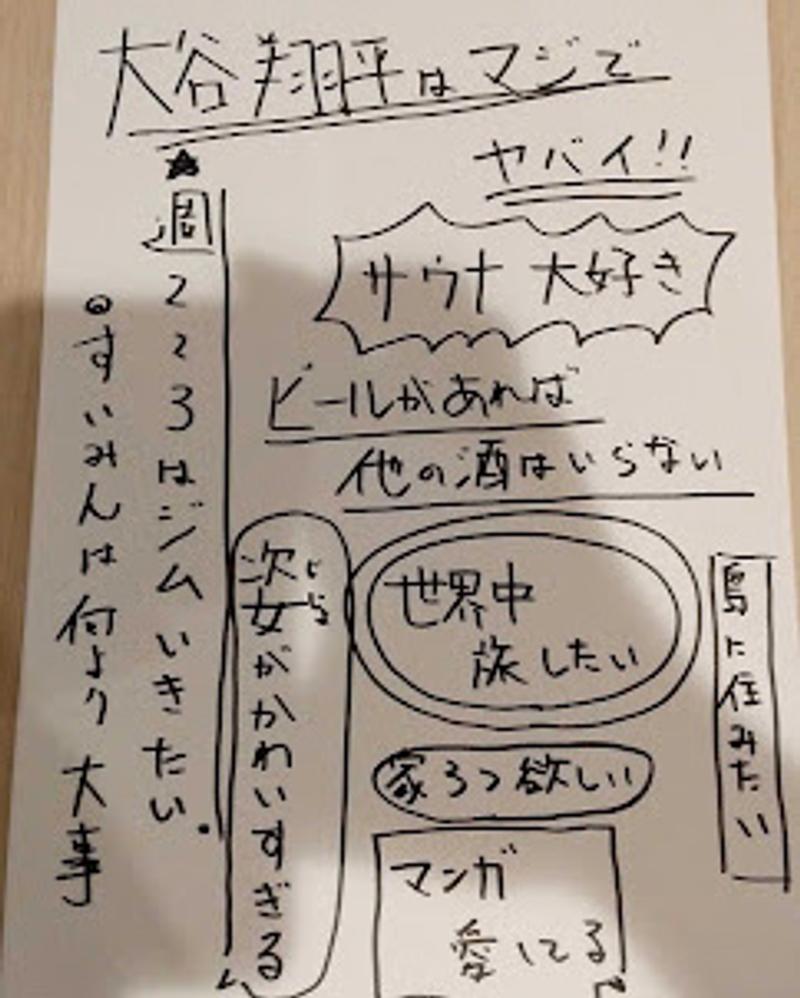 大谷翔平はマジで
ヤバイ!!
サウナ 大好き
ビールがあれば
他の酒はいらない
世界中
旅したい
島に住みたい
家3つ欲しい
マンガ
愛してる
次女がかわいすぎる
じじょ
★週2、3はジムいきたい。
◎すいみんは何より大事